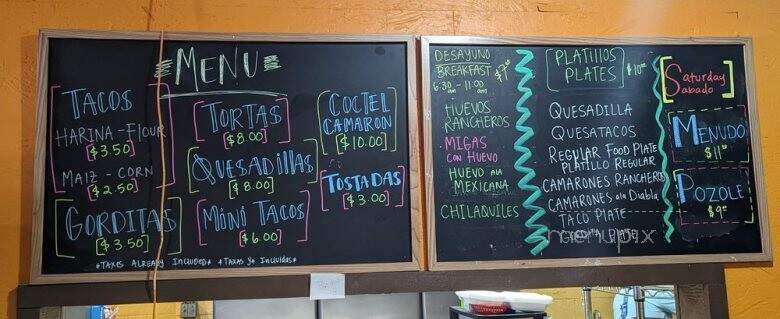 MENU
TACOS
HARINA - FLOUR
$3.50
MAIZ - CORN
$2.50
GORDITAS
$3.50
TORTAS
$8.00
QUESADILLAS
$8.00
MINI TACOS
$6.00
COCTEL
CAMARON
$10.00
TOSTADAS
$3.00
*TAXES ALREADY INCLUDED* *TAXAS YA INCLUIDAS*
DESAYUNO
BREAKFAST
6:30 - 11:00
am am
HUEVOS
RANCHEROS
MIGAS
CON HUEVO
HUEVO ALA
MEXICANA
CHILAQUILES
PLATILLOS
PLATES
QUESADILLA
QUESATACOS
REGULAR FOOD PLATE
PLATILLO REGULAR
CAMARONES RANCHEROS
CAMARONES ala DIABLA
TACO PLATE
PLATE
menupix
Saturday
Sabado
MENUDO
POZOLE